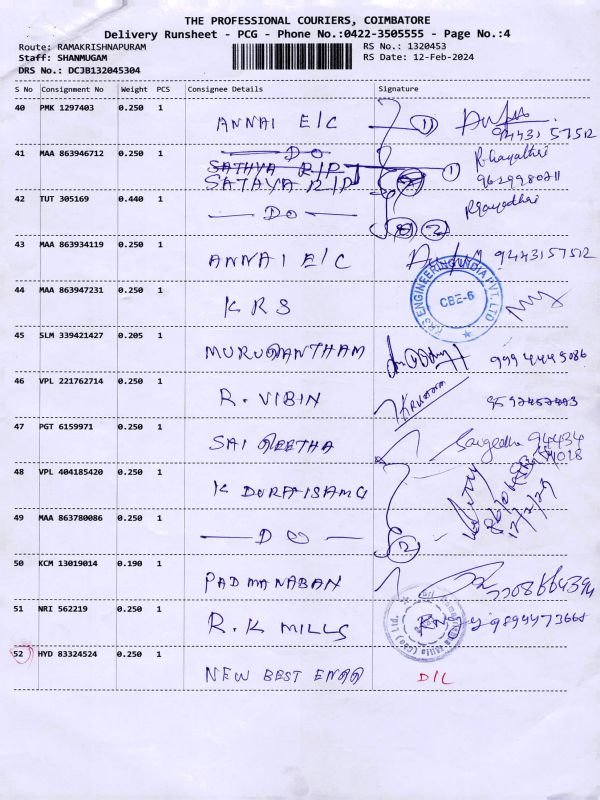 THE PROFESSIONAL COURIERS, COIMBATORE
Delivery Runsheet - PCG - Phone No.:0422-3505555 - Page No.:4
Route: RAMAKRISHNAPURAM RS No.: 1320453
Staff: SHANMUGAM RS Date: 12-Feb-2024
DRS No.: DCJB132045304
S No Consignment No Weight PCS Consignee Details Signature
40 PMK 1297403 0.250 1 ANNAI E/C 1 94431 57512
41 MAA 863946712 0.250 1 DO
SATHYA R I P
SATHYA R I P 1 R. Gayathri
9629980711
42 TUT 305169 0.440 1 DO 2
43 MAA 863934119 0.250 1 ANNAI E/C 9443157512
44 MAA 863947231 0.250 1 KRS
KRS ENGINEERING INDIA PVT. LTD
CBE-6
45 SLM 339421427 0.205 1 MURUGANTHAM 9994449086
46 VPL 221762714 0.250 1 R. VIBIN
47 PGT 6159971 0.250 1 SAI GEETHA 94434
48 VPL 404185420 0.250 1 K DURAISAMG
12/2/24
49 MAA 863780086 0.250 1 DO 2
50 KCM 13019014 0.190 1 PADMANABAN
51 NRI 562219 0.250 1 R.K MILLS 9894473668
52 HYD 83324524 0.250 1 NEW BEST ENGG D/L